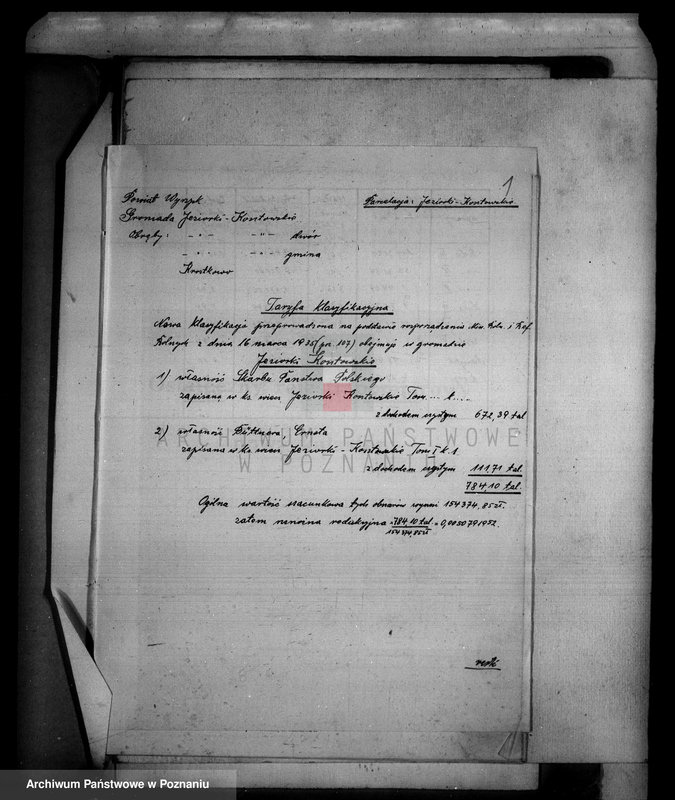 1
Powiat Wyrzysk
Parcelacja: Jeziorki-Kosztowskie
Gromada Jeziorki-Kosztowskie
Obręby: - " - - " - dwór
- " - - " - gmina
Kosztkowo
Taryfa klasyfikacyjna
Nowa klasyfikacja przeprowadzona na podstawie rozporządzenia Min. Roln. i Ref.
Rolnych z dnia 16 marca 1935 (poz. 107) obejmuje w gromadzie
Jeziorki Kosztowskie
1) własność Skarbu Państwa Polskiego
zapisaną w ks. wiecz. Jeziorki Kosztowskie Tom ... k. ...
z dochodem czystym 672,39 tal
2) własność Büttnera, Ernsta
zapisaną w ks. wiecz. Jeziorki - Kosztowskie Tom I k. 1.
z dochodem czystym 111,71 tal.
784,10 tal.
Ogólna wartość szacunkowa tych obszarów wynosi 154374,85 zł.
zatem redukcyjna = 784,10 tal. / 154374,85 zł = 0,0050791952.
verte
ARCHIWUM PAŃSTWOWE
W POZNANIU
Archiwum Państwowe w Poznaniu